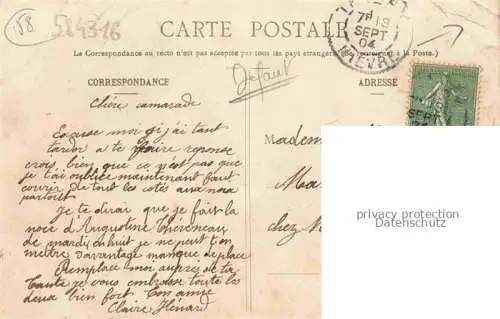 158
584316
CARTE POSTALE
La Correspondance au recto n'est pas acceptée par tous les pays étrangers
à la Poste.)
CORRESPONDANCE
Defaut
ADRESSE
7E 18
SEPT
04
NIEVRE
SEPT
Chère camarade
Excuse moi si j'ai tant
tardée a te faire reponse
crois bien que ce n'est pas que
je t'ai oubliée maintenant faut
courir de tout les cotés
partout
Je te dirai que je fait la
noce d'Augustine Thereneau
de mardi en huit je ne peut t'en
mettre d'avantage manque de place
Remplace moi auprès de ta
tante je vous embrasse toute les
deux bien fort Ton amie
Claire Hénard
Madem
Ma
chez
privacy protection
Datenschutz